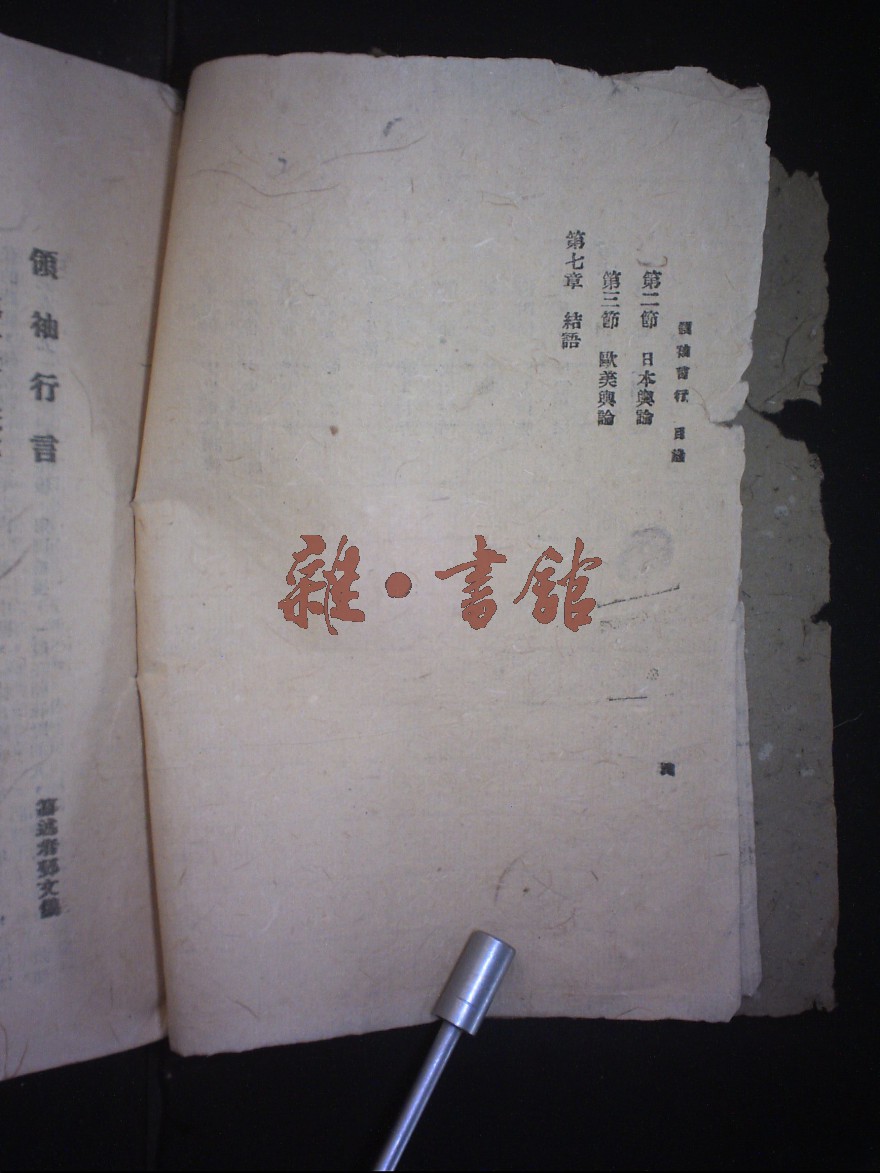 領袖言行 目錄
第二節 日本輿論
第三節 歐美輿論
第七章 結語
雜·書館
領袖行言
纂述者鄧文儀